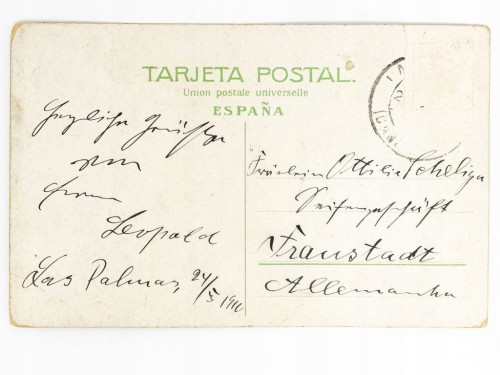 TARJETA POSTAL.
Union postale universelle
ESPAÑA
Herzliche Grüße
von
Leopold
Las Palmas, 24/5 191
Fräulein Ottilie Scheliga
Seifengeschäft
Fraustadt
Allemanha